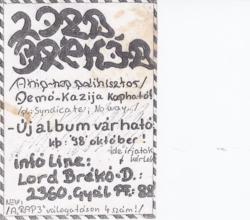 LORD
BRÉKÓ-D
/A hip-hop polihisztor/
Demó-Kazija Kapható!
Syndicate; No way...
-Új album várható:
kb. '98 október!
Ide írjatok
kérlek
infó line:
Lord Brékó-D.:
2360, Gyál Pf.: 82
/A "RAP3" válogatáson 4 szám!/